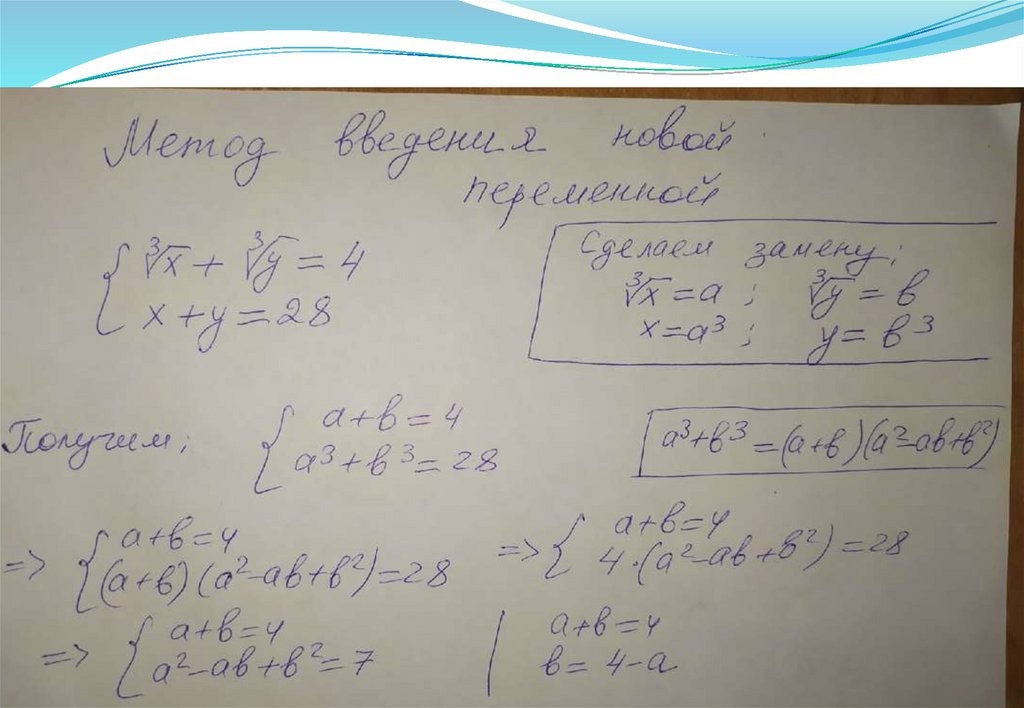 Метод введения новой
переменной
{ ∛x + ∛y = 4
x + y = 28
Сделаем замену;
∛x = a ; ∛y = в
x = a³ ; y = в³
Получим;
{ a + в = 4
a³ + в³ = 28
a³ + в³ = (a + в)(a² – aв + в²)
=> { a + в = 4
(a + в)(a² – aв + в²) = 28
=> { a + в = 4
4 · (a² – aв + в²) = 28
=> { a + в = 4
a² – aв + в² = 7
a + в = 4
в = 4 – a